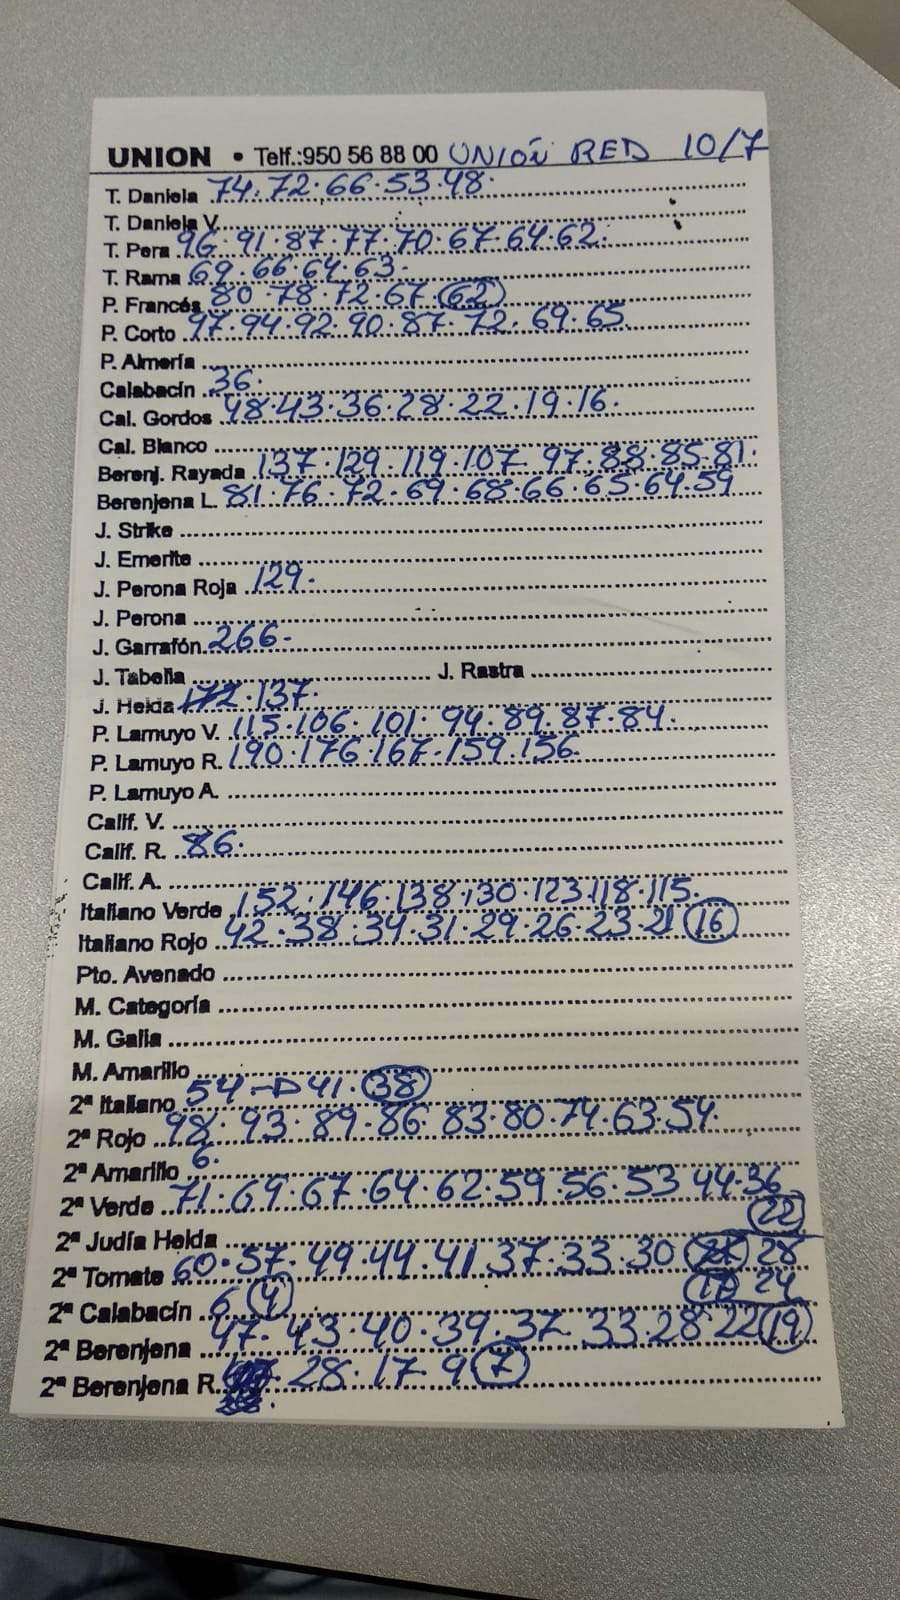 UNION • Telf.:950 56 88 00 UNION RED 10/7
T. Daniela 74.72.66.53.48.
T. Daniela V.
T. Pera 96.91.87.77.70.67.64.62.
T. Rama 69.66.64.63.
P. Francés 80.78.72.67.62
P. Corto 97.94.92.90.87.72.69.65
P. Almería
Calabacín 36.
Cal. Gordos 48.43.36.28.22.19.16.
Cal. Blanco
Berenj. Rayada 137.129.119.107.97.88.85.81.
Berenjena L. 81.76.72.69.68.66.65.64.59
J. Strike
J. Emerite
J. Perona Roja 129.
J. Perona
J. Garrafón 266-
J. Tabella J. Rastra
J. Helda 137.
P. Lamuyo V. 115.106.101.94.89.87.84.
P. Lamuyo R. 190.176.167.159.156
P. Lamuyo A.
Calif. V.
Calif. R. 86.
Calif. A.
Italiano Verde 152.146.138.130.123.118.115.
Italiano Rojo 42.38.34.31.29.26.23.21 16
Pto. Avenado
M. Categoría
M. Galia
M. Amarillo
2ª Italiano 54-D41.38
2ª Rojo 98.93.89.86.83.80.74.63.54.
2ª Amarillo 6.
2ª Verde 71.69.67.64.62.59.56.53 44.36
22
2ª Judía Helda
2ª Tomate 60.57.49.44.41.37.33.30 28
24
2ª Calabacín 6 4
2ª Berenjena 47.43.40.39.37.33.28.22 19
2ª Berenjena R. 28.17.9 7